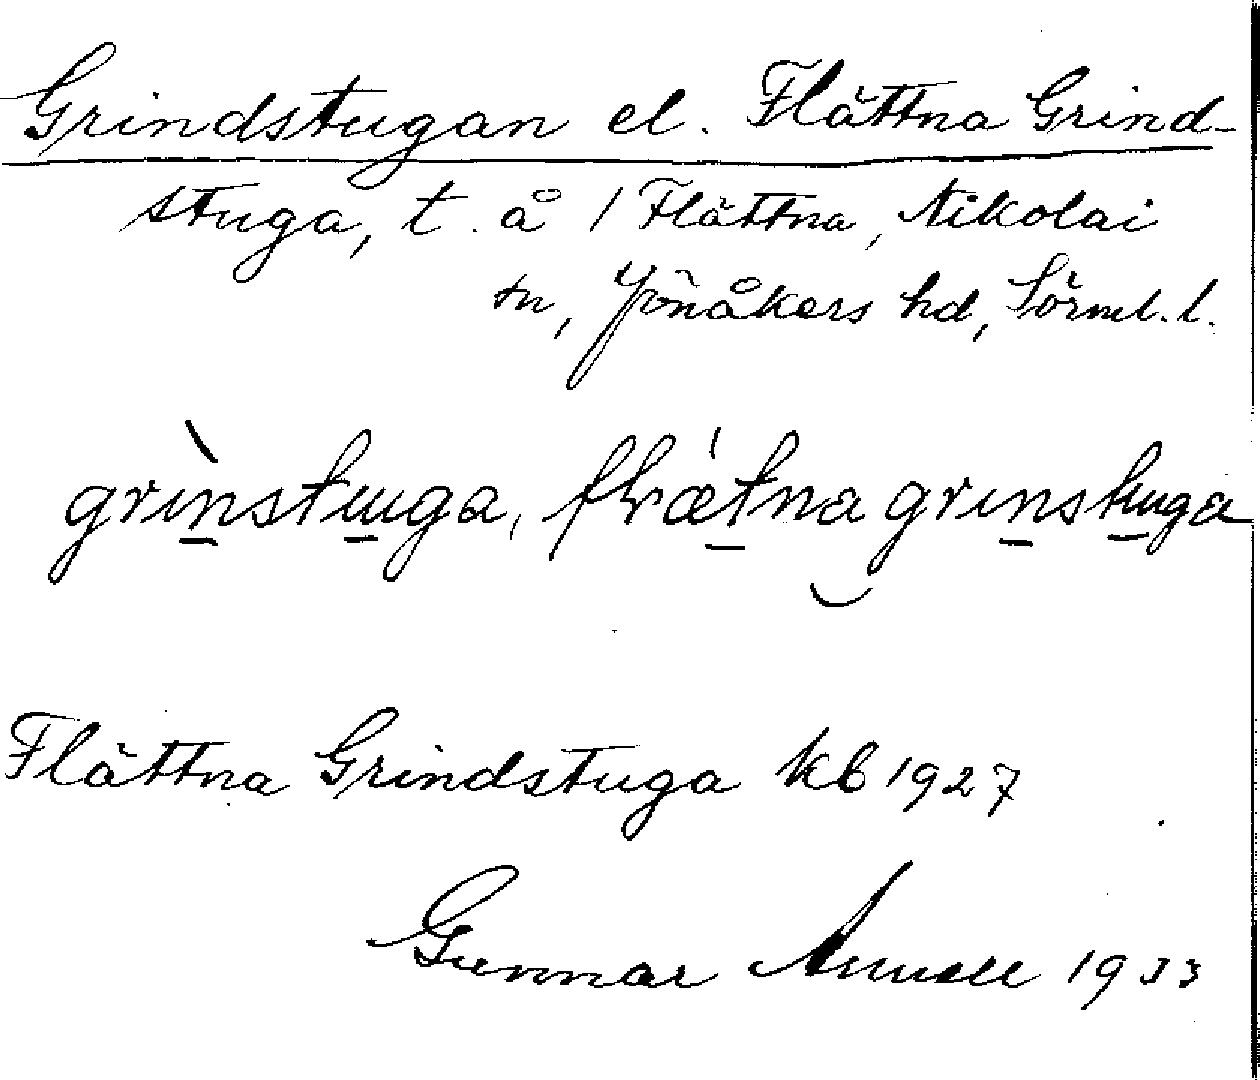 Grindstugan el. Flättna Grind-
stuga, t. å 1 Flättna, Nikolai
sn, Jönåkers hd, Sörml. l.
grìnstuga, flǽtna grinstuga
Flättna Grindstuga kb 1927
Gunnar 1933